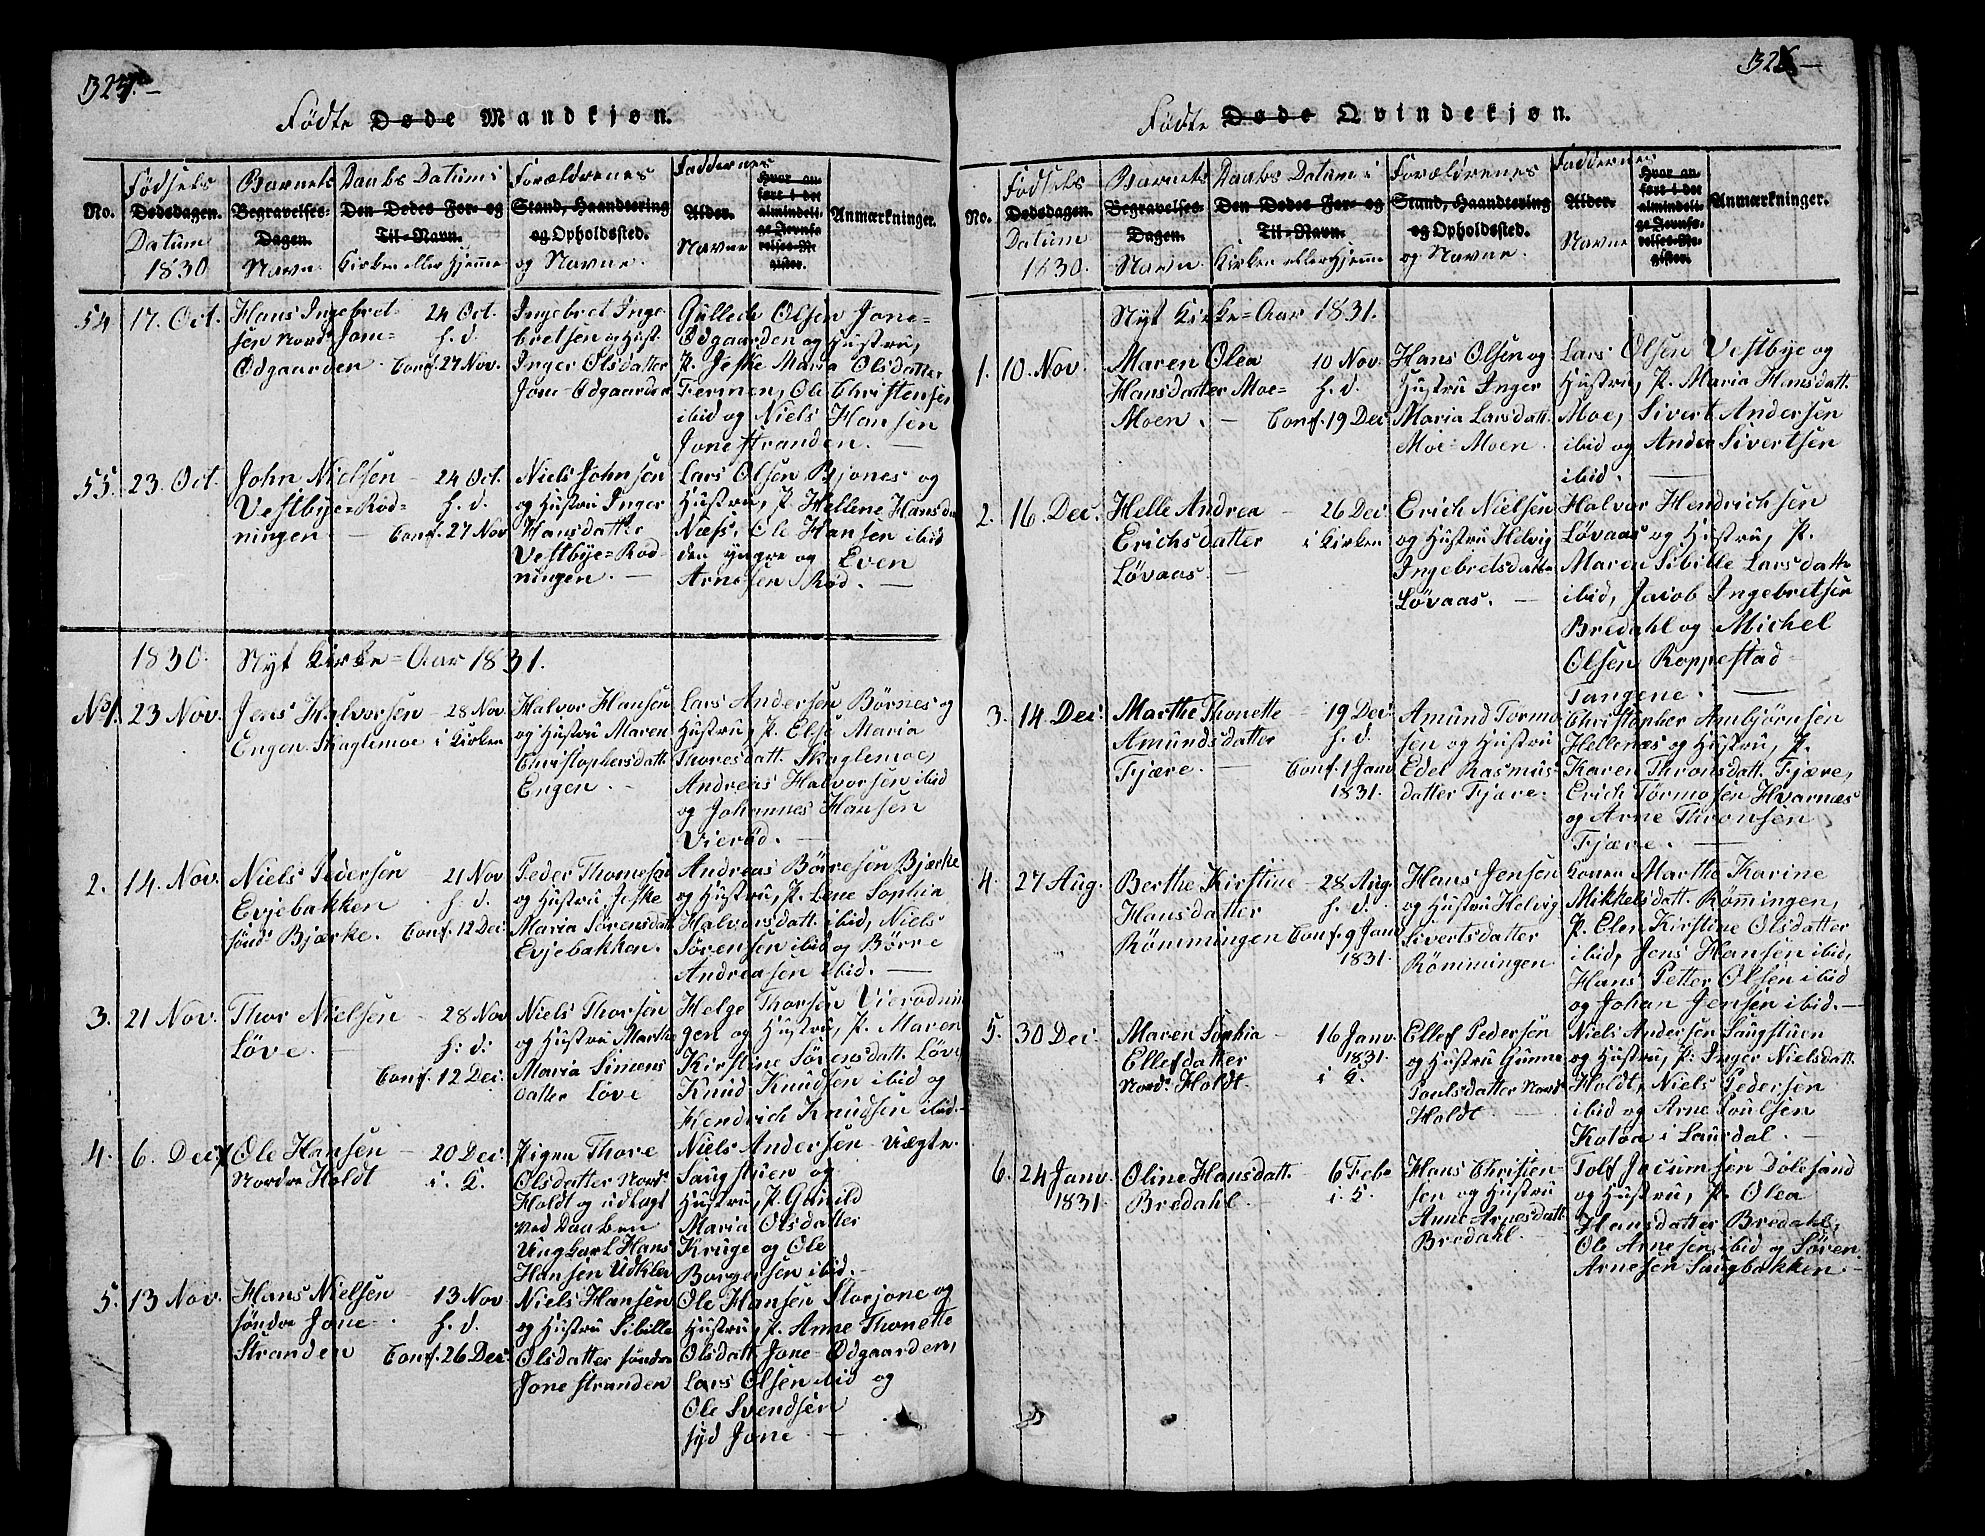 Født̶e̶ Døde Mandkjøn.
No.
Fødsels
Dødsdagen.
Datum
1830
Barnets
Begravelses-
Dagen.
Navn.
Daabs Datum i
Den Dødes For- og
Til-Navn.
Kirken eller Hjemme
Forældrenes
Stand, Haandtering
og Opholdssted.
og Navne.
Faddernes
Alder.
Navne
Hvor an-
ført i det
almindeli-
ge Jevnfø-
relses-Re-
gister.
Anmærkninger.
54 17. Oct.
Hans Ingebret-
sen Nordr Jone-
Ødgaarden
24 Oct.
h. d.
Conf. 27 Nov.
Ingebret Inge-
bretsen og Hust.
Inger Olsdatter
Jone-Ødgaarden
Gullech Olsen Jone-
Ødgaarden og Hustru,
P. Jeske Maria Olsdatter
Fermen, Ole Christensen
ibid og Niels Hansen
Jonestranden. —
55. 23. Oct.
John Nielsen
Vestbye=Rød-
ningen —
24 Oct.
h. d.
Conf. 27 Nov
Niels Johnsen
og Hustru Inger
Hansdatter
Vestbye=Rød-
ningen. —
Lars Olsen Bjønes og
Hustru, P. Hellene Hansda
Næss, Ole Hansen ibid
den yngre og Even
Arnesen Rød. —
1830. Nyt Kirke=Aar 1831.
No 1. 23 Nov.
Jens Halvorsen
Engen Skaglemoe
28 Nov
i Kirken
Halvor Hansen
og Hustru Maren
Christophersdatt.
Engen. —
Lars Andersen Børnes og
Hustru, P. Else Maria
Thoresdatt. Skaglemoe,
Andreas Halvorsen ibid
og Johannes Hansen
Vierød. —
2. 14. Nov.
Niels Pedersen
Evjebakken
søndr Bjærke.
21 Nov
h. d.
Conf. 12 Dec.
Peder Thomesen
og Hustru Jeske
Maria Sørensdatt
Evjebakken.
Andreas Börresen Bjærke
og Hustru, P. Lene Sophia
Halvorsdatt. ibid, Niels
Sørensen ibid og Börre
Andreasen ibid. —
3. 21 Nov.
Thor Nielsen
Løve. —
28 Nov
h. d.
Conf. 12 Dec.
Niels Thorsen
og Hustru Marthe
Maria Simens
datter Løve
Helge Thorsen Vierødnin
gen og Hustru, P. Maren
Kirstine Sörensdatt. Løve
Knud Knudsen ibid og
Hendrich Knudsen ibid. —
4. 6. Dec.
Ole Hansen
Nordre Holdt
20 Dec.
i. K.
Pigen Thore
Olsdatter Nordr
Holdt og udlagt
ved Daaben
Ungkarl Hans
Hansen Udklev
Niels Andersen Vægte.
Saugstuen og
Hustru, P. Gunild
Maria Olsdatter
Kruge og Ole
Borgersen ibid. —
5. 13 Nov.
Hans Nielsen
søndre Jone-
Stranden
13 Nov
h. d.
Conf. 26 Dec
Niels Hansen
og Hustru Sibille
Olsdatter søndre
Jonestranden
Ole Hansen Storjone og
Hustru, P. Anne Thonette
Olsdatt. Jone-Ødgaarden,
Lars Olsen ibid og
Ole Svendsen
syd Jone. —
Fødte Døde Qvindekjøn.
No.
Fødsels
Dødsdagen.
Datum
1830.
Barnets
Begravelses-
Dagen.
Navn
Daabs Datum i
Den Dødes For- og
Til-Navn.
Kirken eller Hjemme
Forældrenes
Stand, Haandtering
og Opholdssted.
og Navne.
Faddernes
Alder.
Navne
Hvor an-
ført i det
almindeli-
ge Jevnfø-
relses-Re-
gister.
Anmærkninger.
Nyt Kirke=Aar 1831.
1. 10 Nov.
Maren Olea
Hansdatter Moe-
Moen. —
10 Nov.
h. d.
Conf. 19 Dec
Hans Olsen og
Hustru Inger
Maria Larsdatt.
Moe=Moen.
Lars Olsen Vestbye og
Hustru, P. Maria Hansdatt.
Moe, Sivert Andersen
ibid og Anders Sivertsen
ibid. —
2. 16. Dec.
Helle Andrea
Erichsdatter
Løvaas. —
26 Dec
i Kirken
Erich Nielsen
og Hustru Helvig
Ingebretsdatt.
Løvaas. —
Halvor Hendrichsen
Løvaas og Hustru, P.
Maren Sibille Larsdatt.
ibid, Jacob Ingebretsen
Bredahl og Michel
Olsen Roppestad
Tangene. —
3. 14 Dec.
Marthe Thonette
Amundsdatter
Fjære. —
19 Dec
h. d.
Conf. 1 Janv
1831.
Amund Tormo
sen og Hustru
Edel Rasmus
datter Fjære.
Christopher Ambjørnsen
Hellenæs og Hustru, P.
Karen Thronsdatt. Fjære,
Erich Tormosen Hvarnæs
og Arne Thronsen
Fjære. —
4. 27 Aug.
Berthe Kirstine
Hansdatter
Römmingen
28 Aug.
h. d.
Conf. 9 Janv
1831.
Hans Jensen
og Hustru Helvig
Sivertsdatter
Römmingen
Konen Marthe Karine
Mikkelsdatt. Römmingen,
P. Elen Kirstine Olsdatter
ibid, Jens Hansen ibid,
Hans Petter Olsen ibid
og Johan Jensen ibid. —
5. 30 Dec.
Maren Sophia
Ellefdatter
Nordr Holdt.
16 Janv.
1831.
i K.
Ellef Pedersen
og Hustru Gunne
Poulsdatter Nordr
Holdt. —
Niels Andersen Saugstuen
og Hustru, P. Inger Nielsdatt.
Holdt, Niels Pedersen
ibid og Arne Poulsen
Koloa i Laurdal. —
6. 24 Janv.
1831.
Oline Hansdatt.
Bredahl. —
6 Febr
i. S.
Hans Christen-
sen og Hustru
Anne Arnesdatt
Bredahl. —
Tolf Jacumsen Dolesand
og Hustru, P. Olea
Hansdatter Bredahl,
Ole Arnesen ibid og Søren
Arnesen Saugbakken. —